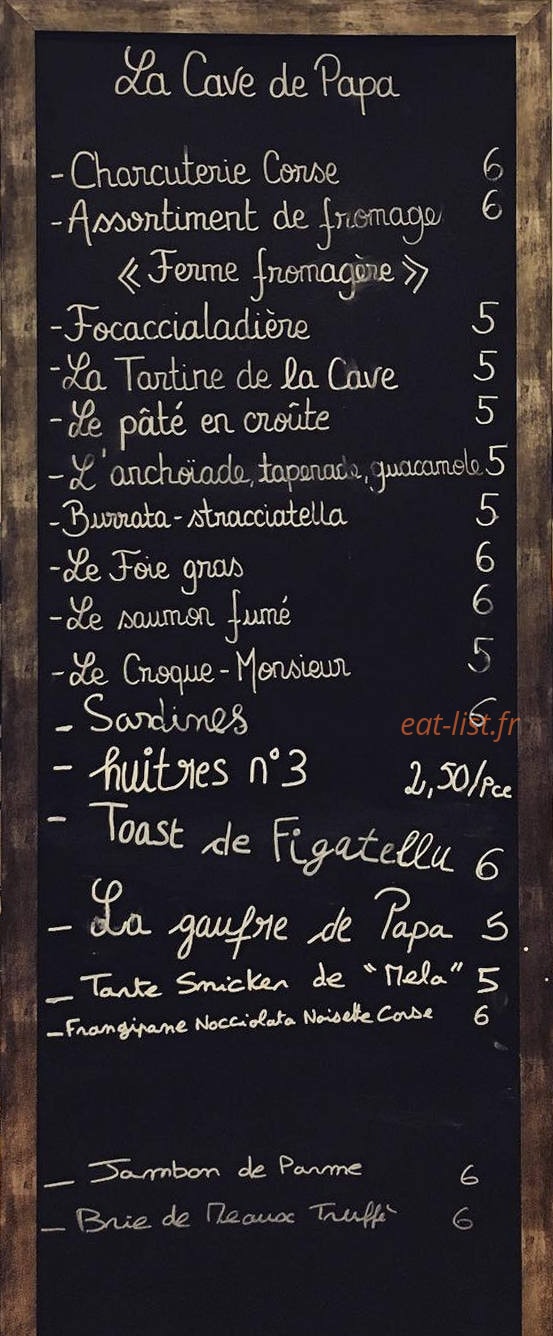 La Cave de Papa
- Charcuterie Corse 6
- Assortiment de fromage 6
« Ferme fromagère »
- Focaccialadière 5
- La Tartine de la Cave 5
- Le pâté en croûte 5
- L'anchoïade, tapenade, guacamole 5
- Burrata - stracciatella 5
- Le Foie gras 6
- Le saumon fumé 6
- Le Croque-Monsieur 5
- Sardines 6
eat-list.fr
- huitres n°3 2,50/Pce
- Toast de Figatellu 6
- La gaufre de Papa 5
- Tarte Snicker de "Mela" 5
- Frangipane Nocciolata Noisette Corse 6
- Jambon de Parme 6
- Brie de Meaux Truffé 6